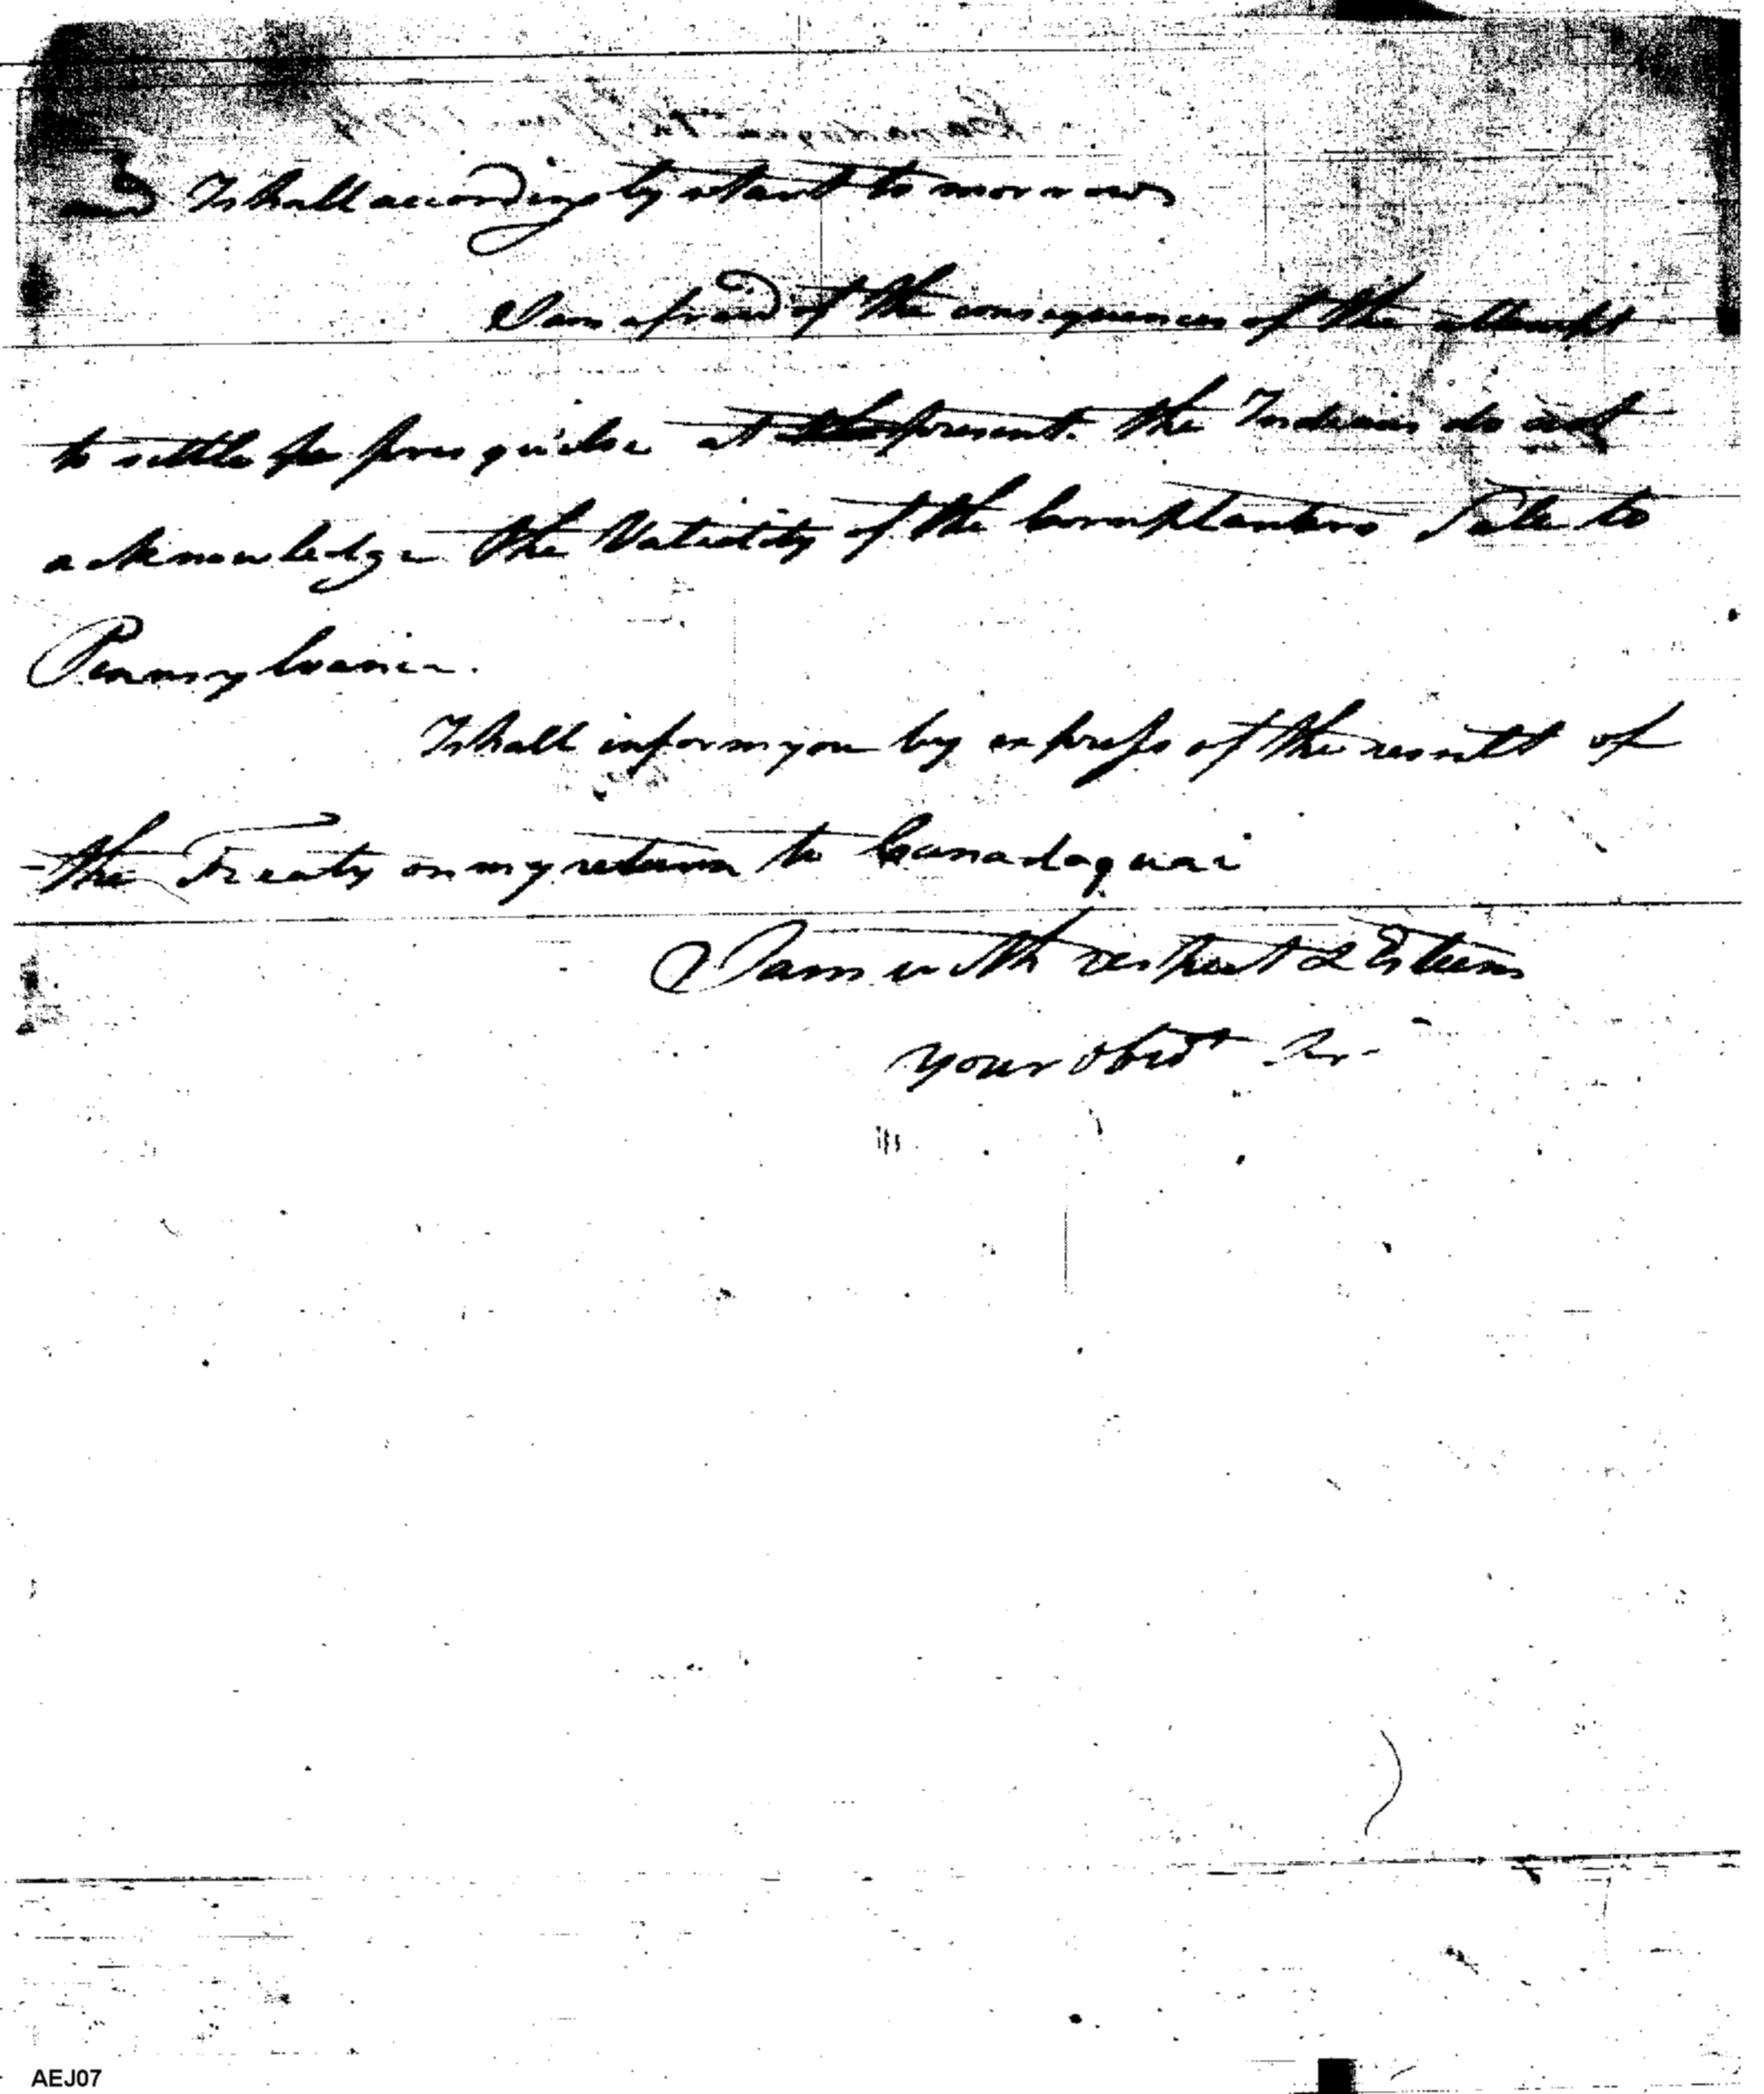 and I shall accordingly start to morrow
I am afraid of the consequences of the attempt
to settle presquilse at the present. the Indians do not
acknowledge the Validity of the Cornplanters Sale to
Pennsylvania.
I shall inform you by express of the result of
the Treaty on my return to Canadaquai
I am with respect & Esteem
your Obedt Sr
AEJ07